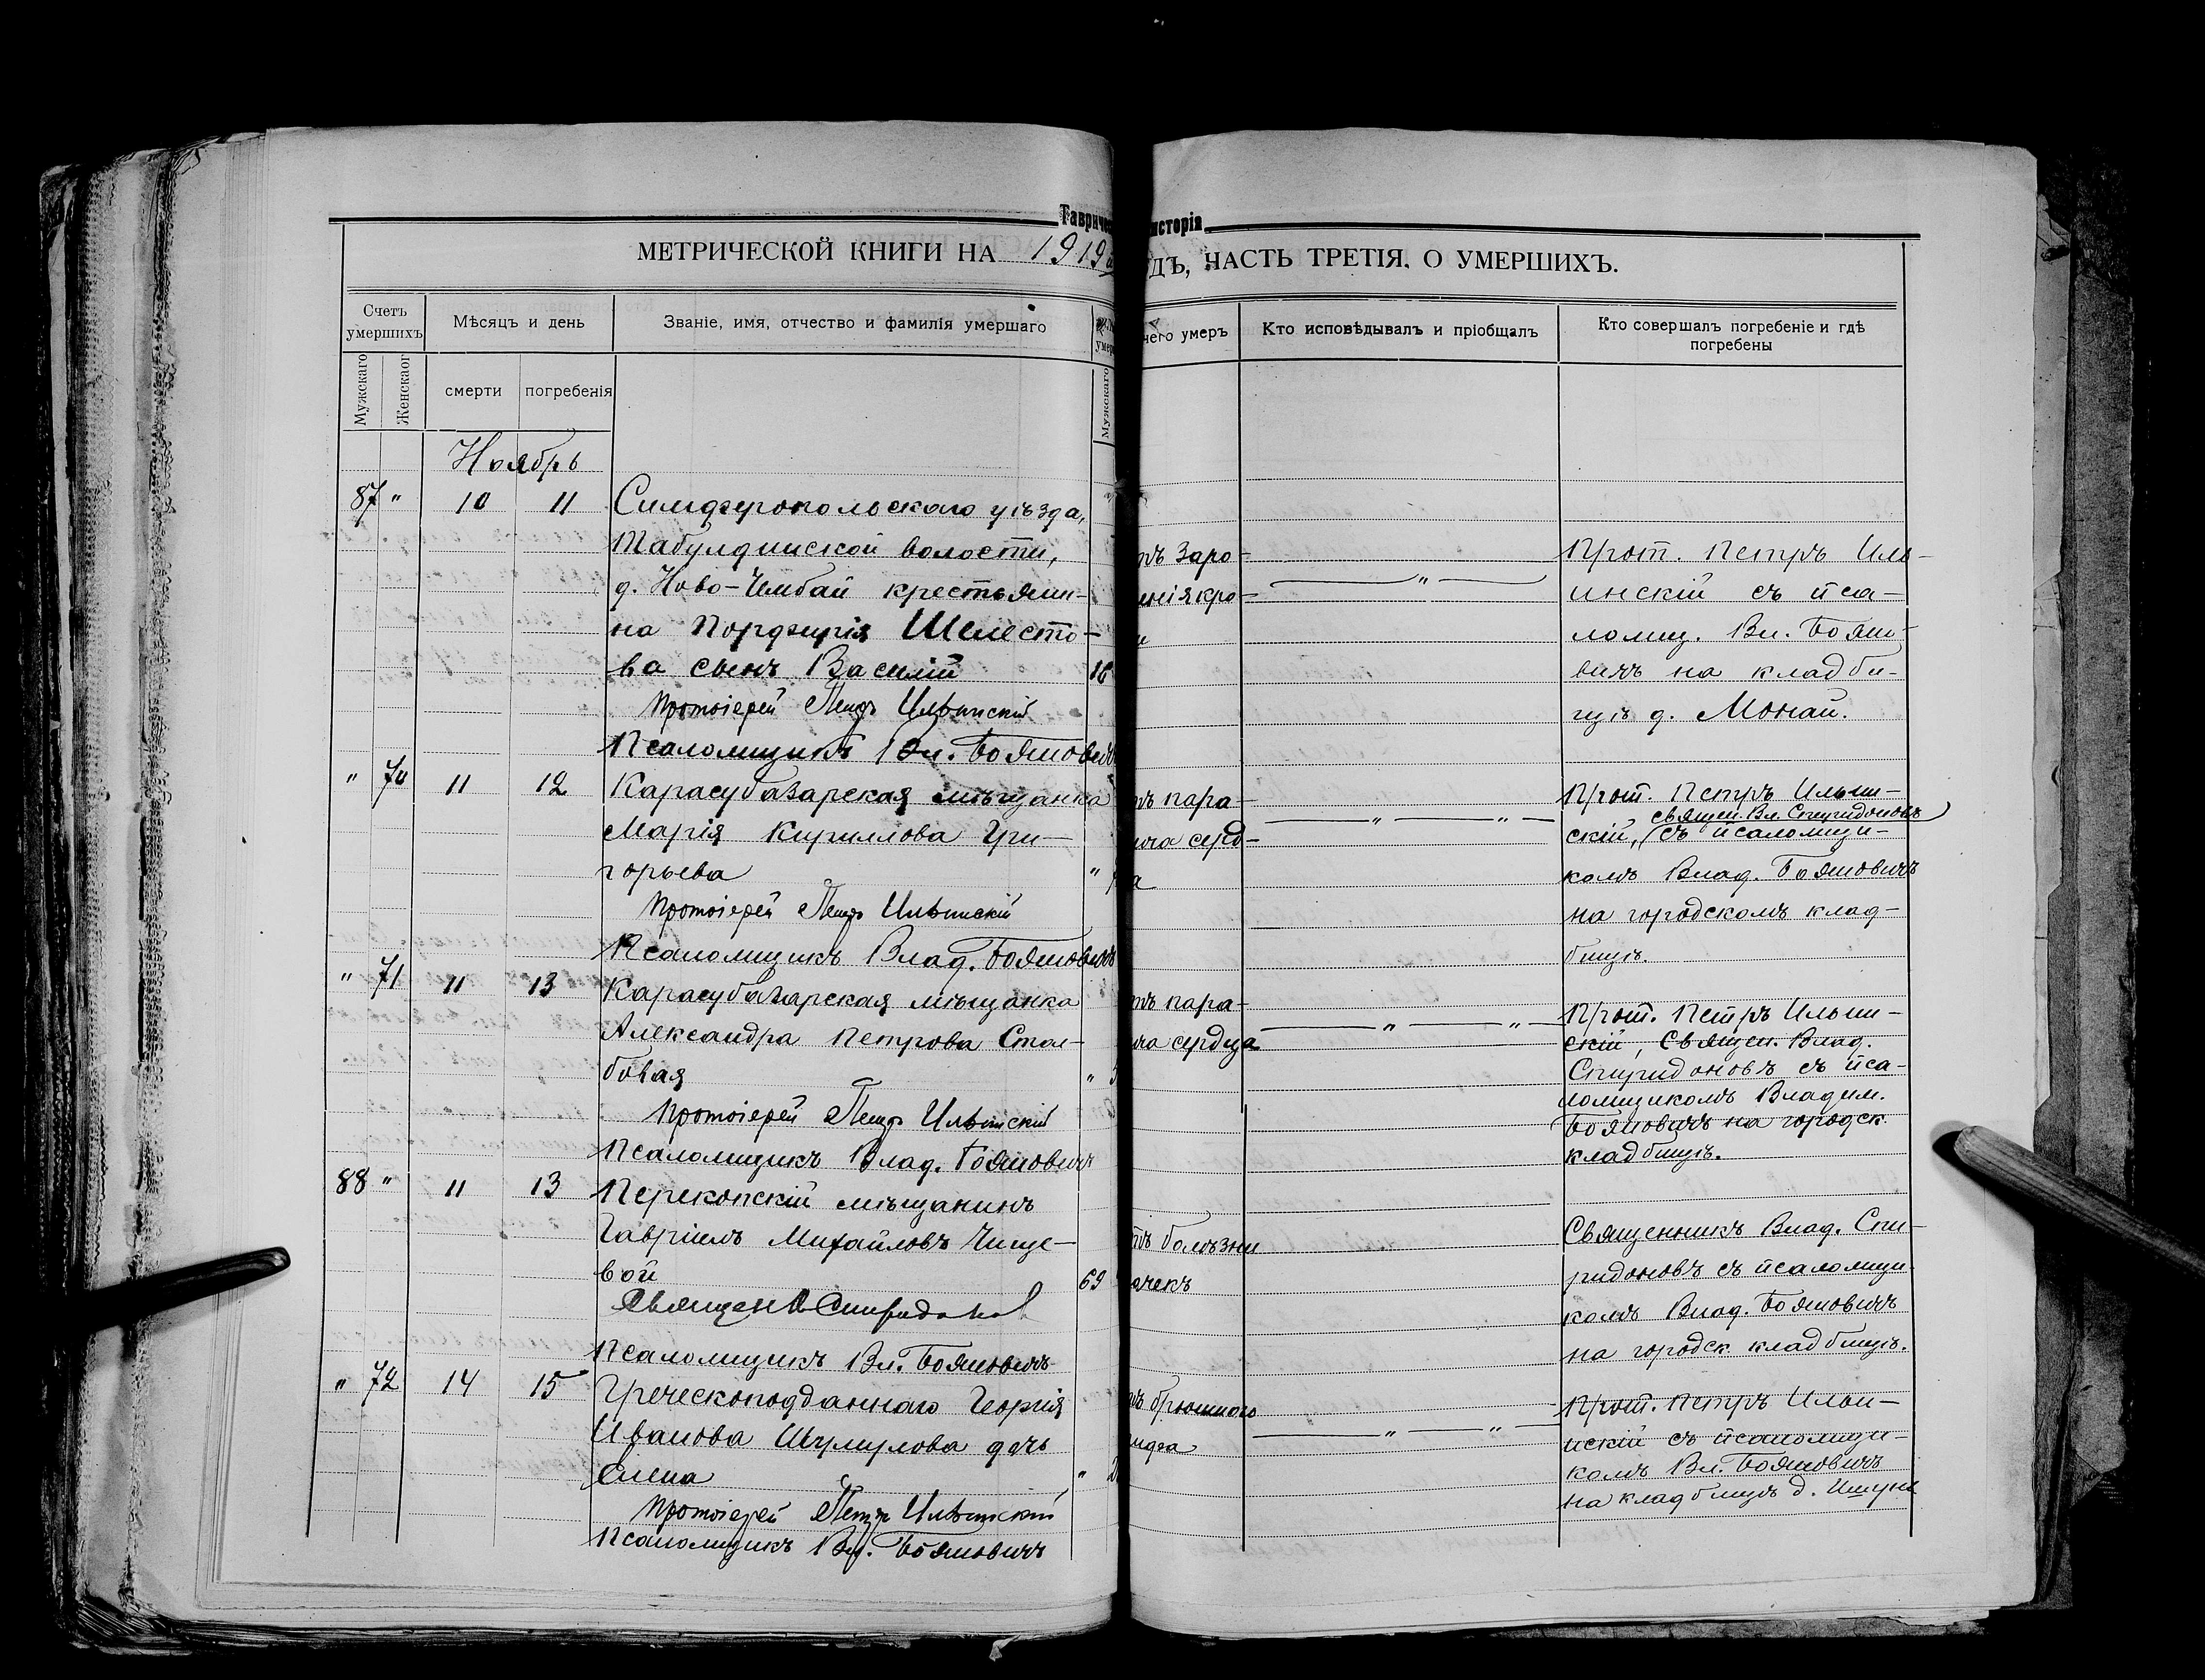 Тавриче
исторія
МЕТРИЧЕСКОЙ КНИГИ НА 1919
ДЪ, ЧАСТЬ ТРЕТІЯ, О УМЕРШИХЪ.
Счетъ умершихъ
Мѣсяцъ и день
Званіе, имя, отчество и фамилія умершаго
чего умеръ
Кто исповѣдывалъ и пріобщалъ
Кто совершалъ погребеніе и гдѣ погребены
Мужскаго
Женскаог
смерти
погребенія
Мужскаго
Ноябрь
87 " 10 11 Симферопольскаго уѣзда,
Табулдинской волости,
д. Ново-Чембай крестьянин-
на Порфирія Шелесто-
ва сынъ Василій
Протоіерей Петръ Ильинскій
Псаломщикъ Вл. Бояновичъ
ъ заро-
енія кро-
и
Прот. Петръ Иль-
инскій съ пса-
ломщ. Вл. Бояно-
вичъ на кладби-
щѣ д. Монай.
" 70 11 12 Карасубазарская мѣщанка
Марія Кирилова Гри-
горьева "
Протоіерей Петръ Ильинскій
Псаломщикъ Влад. Бояновичъ
ъ пара-
ича серд-
а
Прот. Петръ Ильин-
священ. Вл. Спиридоновъ
скій, съ псаломщи-
комъ Влад. Бояновичъ
на городскомъ клад-
бищѣ.
" 71 11 13 Карасубазарская мѣщанка
Александра Петрова Стол-
бовая "
Протоіерей Петръ Ильинскій
Псаломщикъ Влад. Бояновичъ
ъ пара-
ича сердца
Прот. Петръ Ильин-
скій, Священ. Влад.
Спиридоновъ съ пса-
ломщикомъ Владим.
Бояновичъ на городск.
кладбищѣ.
88 " 11 13 Перекопскій мѣщанинъ
Гавріилъ Михайловъ Чище-
вой 69
Священ В Спиридонов
Псаломщикъ Вл. Бояновичъ
тъ болѣзни
очекъ
Священникъ Влад. Спи-
ридоновъ съ псаломщи-
комъ Влад. Бояновичъ
на городск. кладбищѣ.
" 72 14 15 Греческоподданнаго Георгія
Иванова Шумулова дочь
Елена " 2
Протоіерей Петръ Ильинскій
Псаломщикъ Вл. Бояновичъ
ъ брюшного
Прот. Петръ Ильи-
нскій съ псаломщи-
комъ Вл. Бояновичъ
на кладбищѣ д. Ишунь